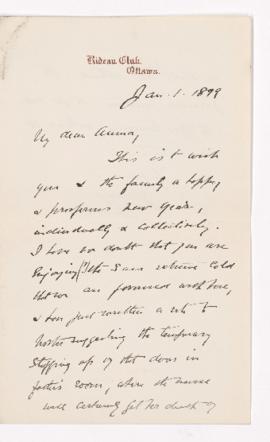 Rideau Club,
Ottawa.
Jan. 1. 1899
My dear Amma,
This is to wish
you & the family a happy
& prosperous new year,
individually & collectively.
I have no doubt that you are
enjoying (!) the same extreme cold
that we are favoured with here,
& have just written a note to
suggesting the temporary
stopping up of the door in
father's room, where the nurse
will certainly get her death of